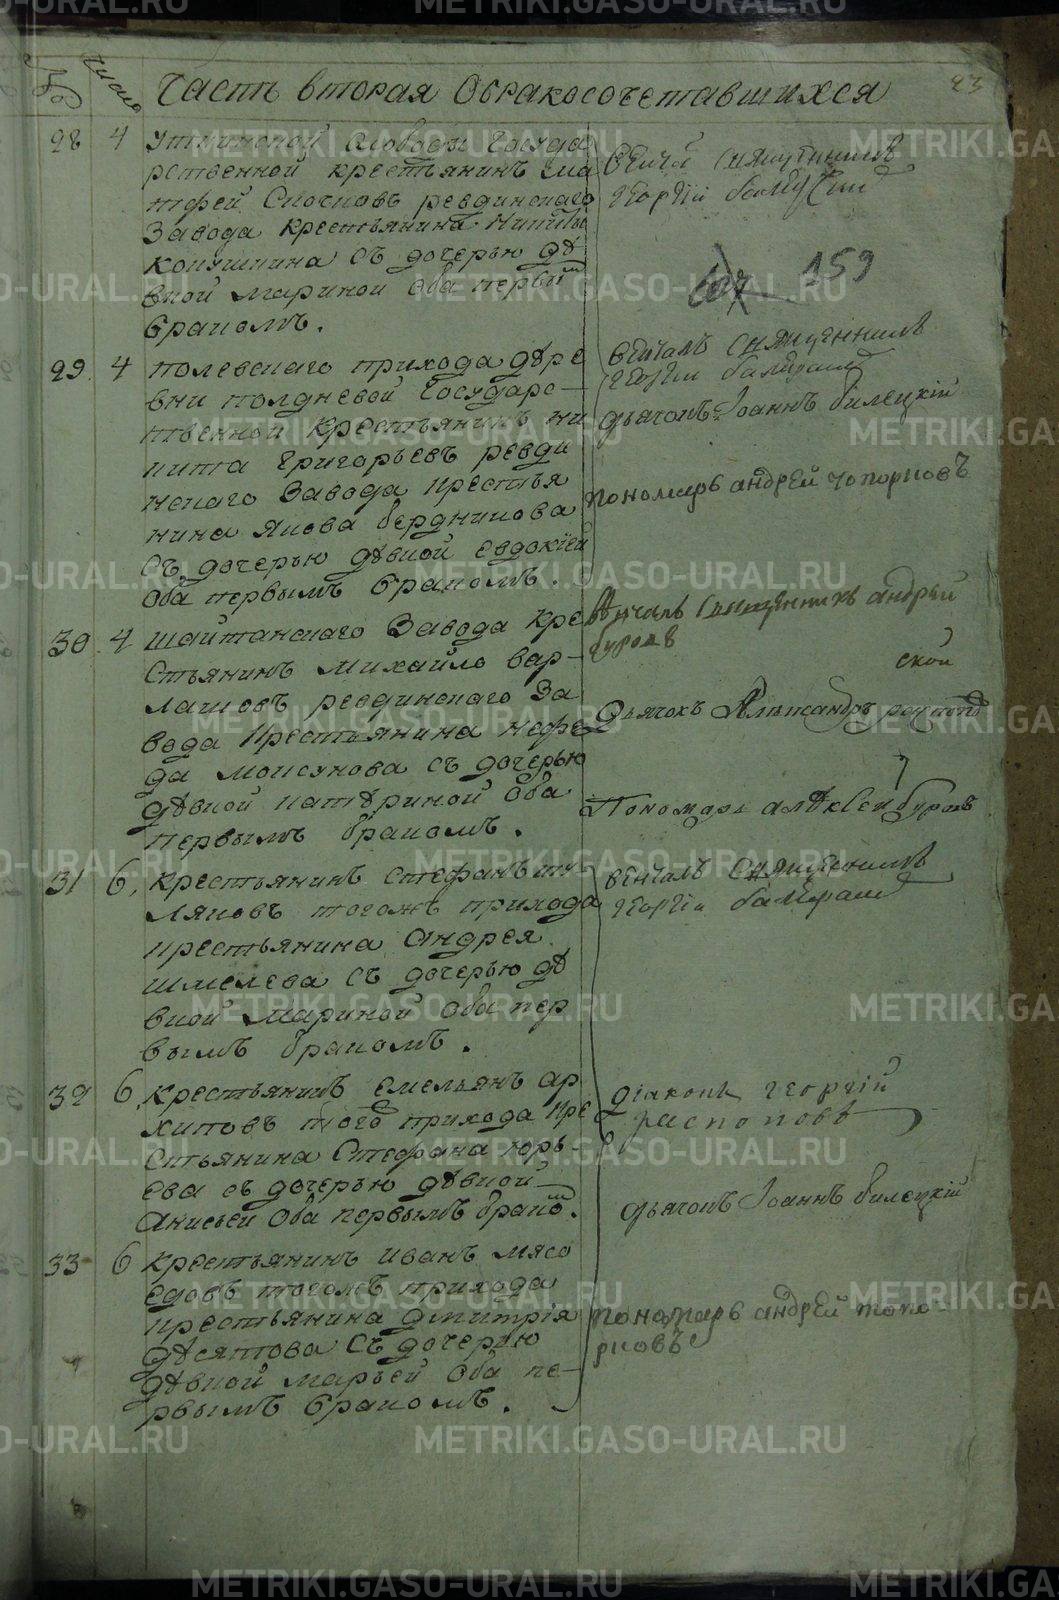 № число Часть вторая Обракосочетавшихся 23
28 4 уткинской слободы Государ
рственной крестьянинъ ма
тфей Скочковъ ревдинскаго
Завода крестьянина Никиты
копушкина съ дочерью дѣ
вкой мариной оба первымъ
бракомъ.
вѣнчалъ священникъ
георгій
159
29 4 полевскаго прихода дѣре
вни полдневой Государс-
твенной крестьянинъ ни
кита Григорьевъ ревди
нскаго Завода крестья
нина якова бердникова
съ дочерью дѣвкой евдокіей
оба первымъ бракомъ.
вѣнчалъ священникъ
георгій
дьячокъ Іоаннъ билецкій
пономарь андрей топорковъ
30 4 шайтанскаго Завода кре
стьянинъ михайло вар-
лаковъ ревдинскаго За
вода крестьянина нефе
да моисунова съ дочерью
дѣвкой катѣриной оба
первымъ бракомъ.
вѣнчалъ священникъ андрей
буровъ
ской
Дьячокъ Александръ
Пономарь алѣксей буровъ
31 6 крестьянинъ стефанъ ту
ляковъ тогожъ прихода
крестьянина андрея
шмелева съ дочерью дѣ
вкой мариной оба пер
вымъ бракомъ.
вѣнчалъ священникъ
георгій
32 6 крестьянинъ емельянъ ар
хиповъ того прихода кре
стьянина Стефана юрь-
ева съ дочерью дѣвкой
анисьей оба первымъ бракомъ.
діаконъ георгій
распоповъ
дьячокъ Іоаннъ билецкій
33 6 крестьянинъ иванъ мясо
едовъ тогожъ прихода
крестьянина дмитрія
дѣсяткова съ дочерью
дѣвкой марьей оба пе-
рвымъ бракомъ.
пономарь андрей топо-
рковъ
METRIKI.GASO-URAL.RU